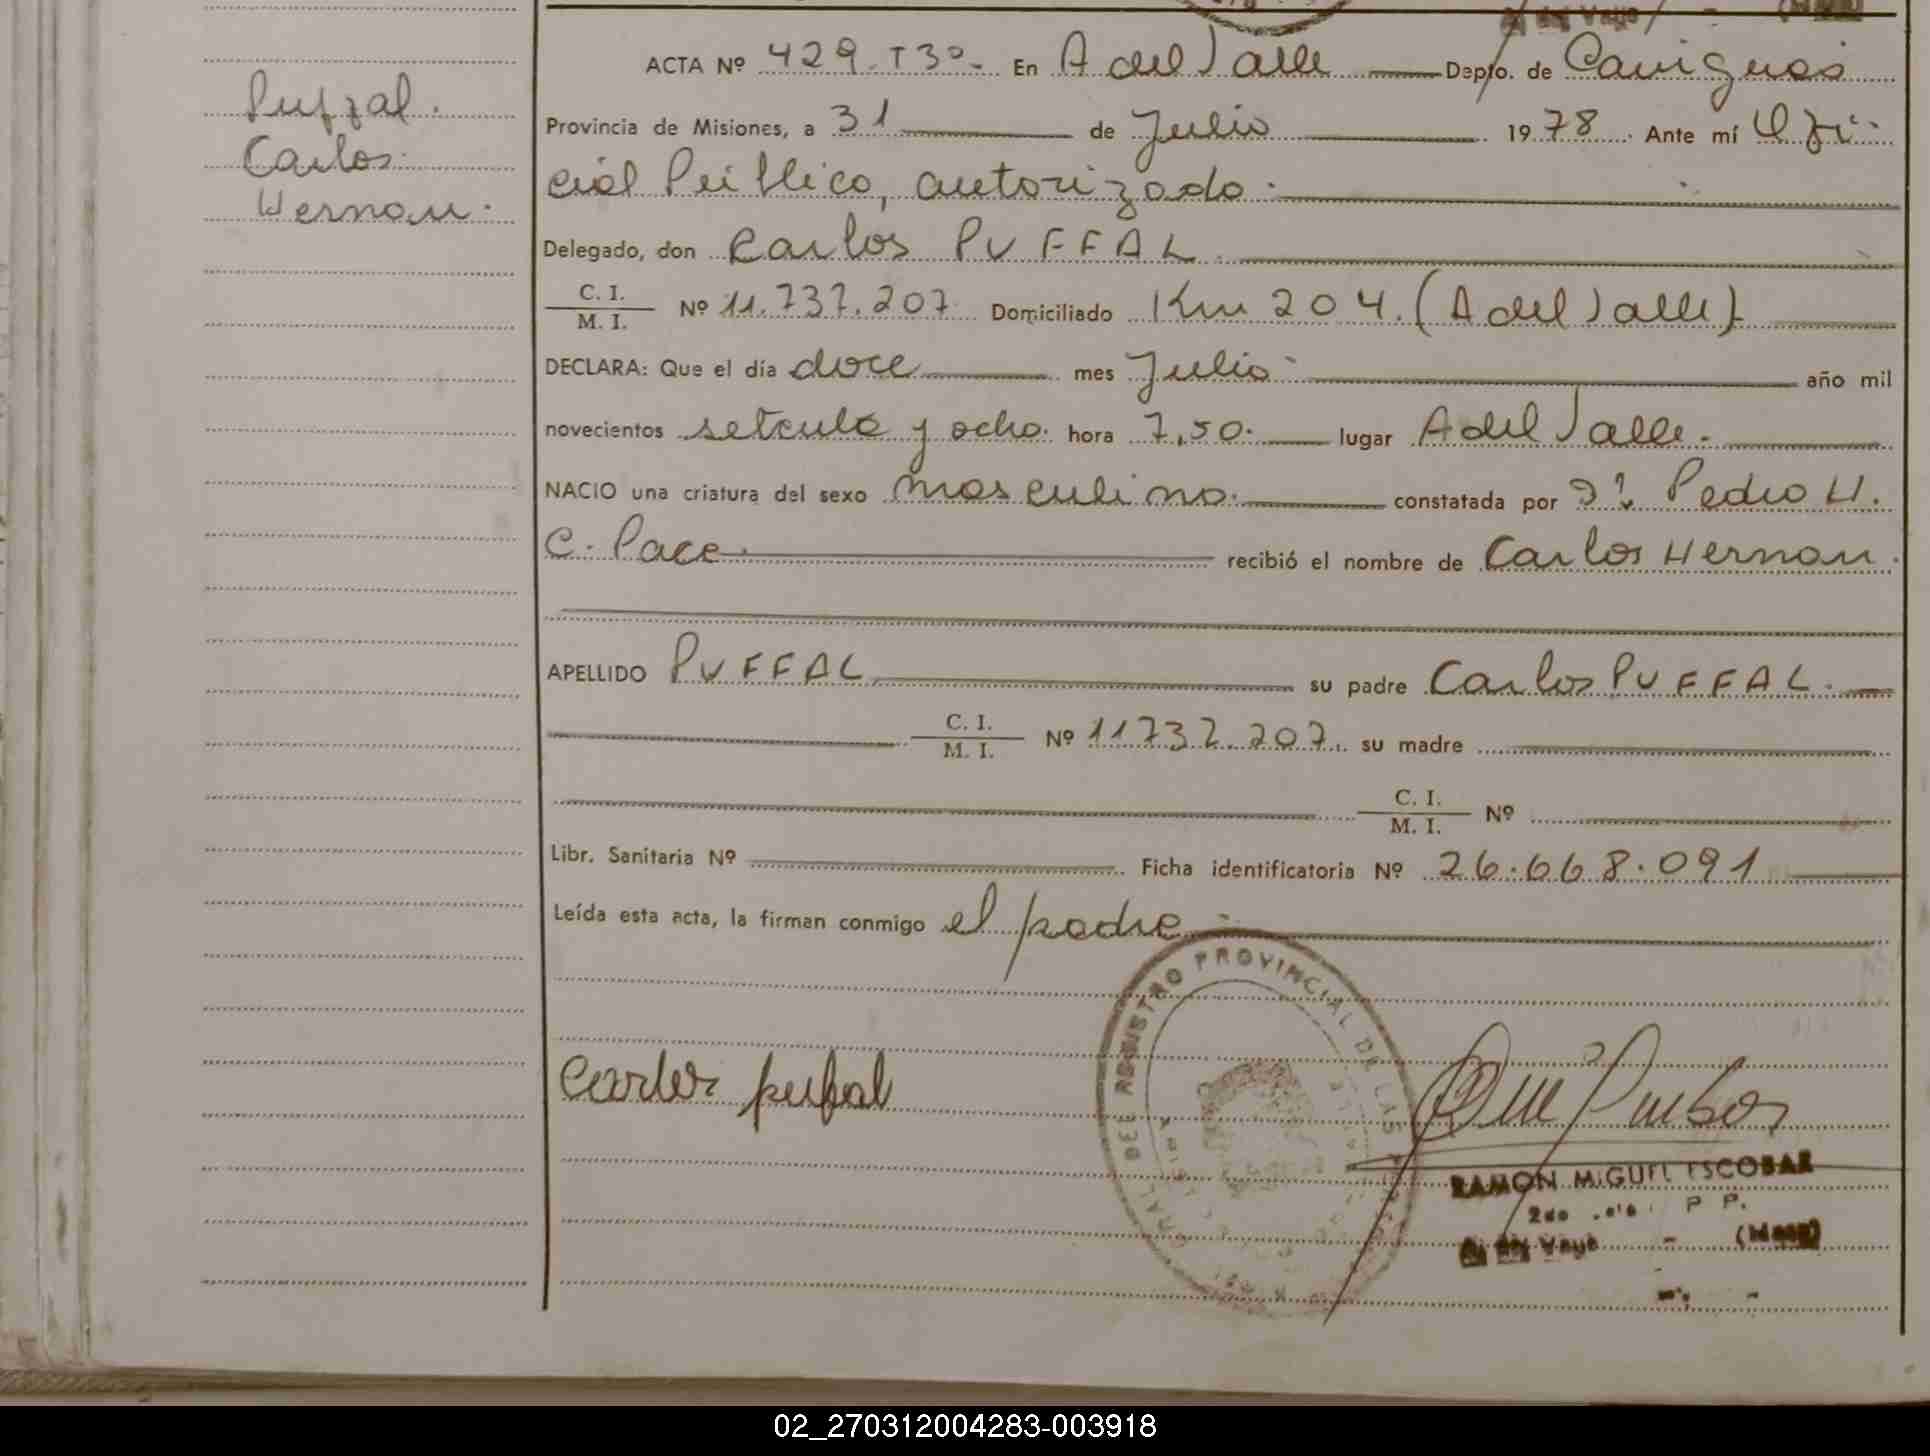 Puffal.
Carlos
Hernan.
ACTA Nº 429-T3º- En A del Valle Depto. de Cainguas
Provincia de Misiones, a 31 de Julio 1978. Ante mí Ofi-
cial Público, autorizado.
Delegado, don Carlos PUFFAL.
C. I.
M. I. Nº 11.737.207 Domiciliado Km 204. (A del Valle)
DECLARA: Que el día doce mes Julio año mil
novecientos setenta y ocho. hora 7,50. lugar A del Valle.
NACIO una criatura del sexo masculino. constatada por Dr. Pedro H.
C. Pace. recibió el nombre de Carlos Hernan.
APELLIDO PUFFAL su padre Carlos PUFFAL.
C. I.
M. I. Nº 11737.207. su madre
C. I.
M. I. Nº
Libr. Sanitaria Nº Ficha identificatoria Nº 26.668.091
Leída esta acta, la firman conmigo el padre
REGISTRO PROVINCIAL DE LAS
Carlos pufal
RAMON MIGUEL ESCOBAR
02_270312004283-003918